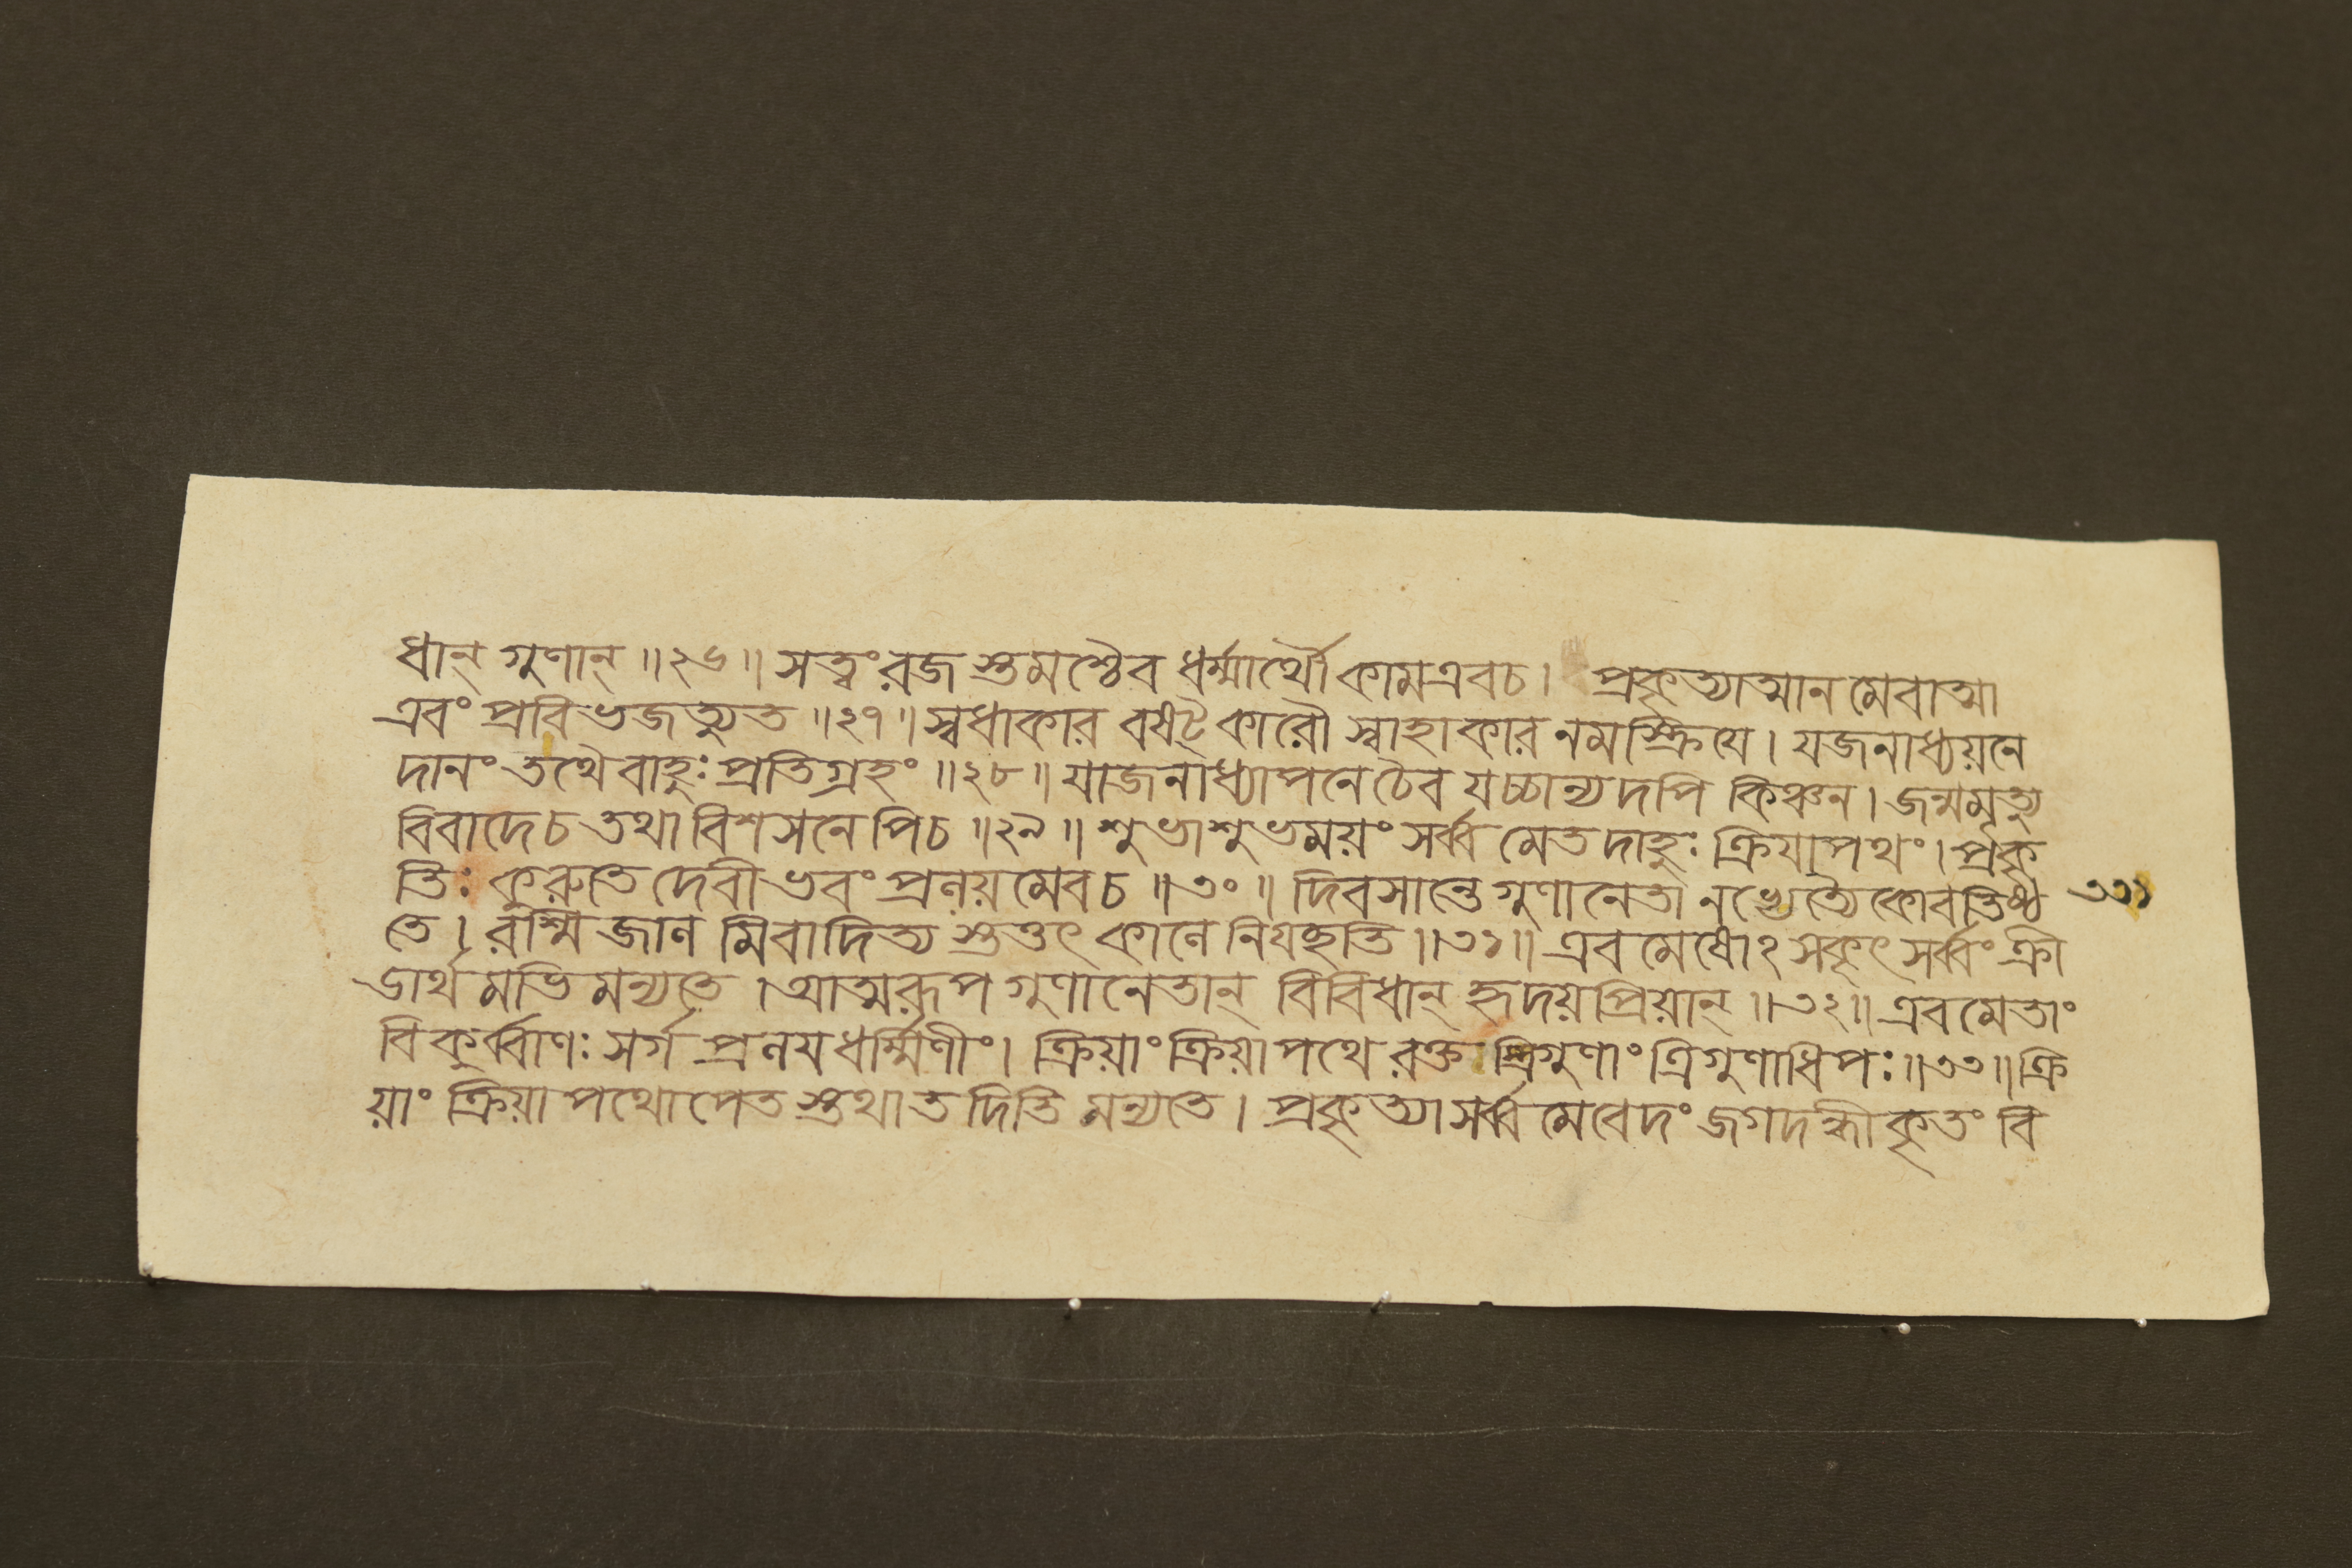 ধান্ গুণান্ ॥২৬॥ সত্ত্বং রজ স্তমশ্চৈব ধর্ম্মার্থৌ কামএবচ। প্রকৃত্যাত্মান মেবাত্মা
এবং প্রবিভজত্যুত ॥২৭॥ স্বধাকার বষট্কারৌ স্বাহাকার নমস্ক্রিযে। যজনাধ্যয়নে
দানং তথৈবাহুঃ প্রতিগ্রহং ॥২৮॥ যাজনাধ্যাপনে চৈব যচ্চান্য দপি কিঞ্চন। জন্মমৃত্যু
বিবাদেচ তথা বিশসনে পিচ ॥২৯॥ শুভাশুভময়ং সর্ব্ব মেত দাহুঃ ক্রিযাপথং। প্রকৃ
তিঃ কুরুতে দেবী ভবং প্রনয় মেবচ ॥৩০॥ দিবসান্তে গুণানেতা নভ্যেত্যৈকোবতিষ্ঠ ৩৩১
তে। রশ্মি জান মিবাদিত্য স্তত্তৎ কানে নিযচ্ছতি ॥৩১॥ এব মেষোঽ সকৃৎ সর্ব্বং ক্রী
ডার্থ মভি মন্যতে। আত্মরূপ গুণানেতান্ বিবিধান্ হৃদয়প্রিয়ান্ ॥৩২॥ এব মেতাং
বিকুর্ব্বাণঃ সর্গ প্রনযধর্ম্মিণীং। ক্রিয়াং ক্রিয়াপথে রক্ত স্ত্রিগুণাং ত্রিগুণাধিপঃ॥৩৩॥ ক্রি
য়াং ক্রিয়া পথোপেত স্তথা ত দিতি মন্যতে। প্রকৃত্যা সর্ব্ব মেবেদং জগদন্ধীকৃতং বি